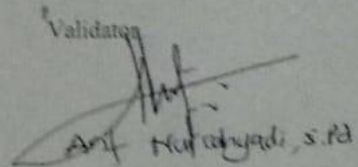 Validator
Arif Nurcahyadi, S.Pd